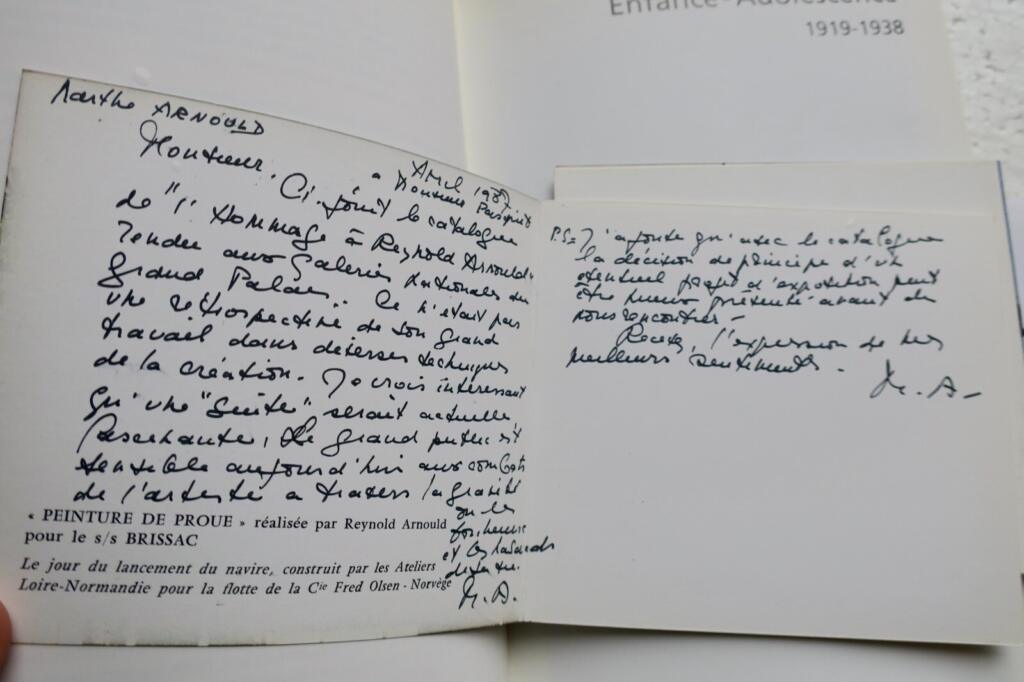 Enfance - Adolescence
1919-1938
Marthe ARNOULD
Avril 198
Monsieur.
à Monsieur
Ci-joint le catalogue
de "l'Hommage à Reynold Arnould"
rendu aux Galeries Nationales du
Grand Palais. Ce n'était pas
une rétrospective de son grand
travail dans diverses techniques
de la création. Je crois intéressant
qu'une "Suite" serait actuelle,
Le grand public est
sensible aujourd'hui aux combats
de l'artiste à travers la gravité
ou les
et les hasards
M. A.
« PEINTURE DE PROUE » réalisée par Reynold Arnould
pour le s/s BRISSAC
Le jour du lancement du navire, construit par les Ateliers
Loire-Normandie pour la flotte de la Cie Fred Olsen - Norvège
P.S. J'ajoute qu'avec le catalogue
la décision de principe d'un
éventuel projet d'exposition peut
être mieux présenté avant de
nous rencontrer -
Recevez, l'expression de mes
meilleurs sentiments.
M. A-